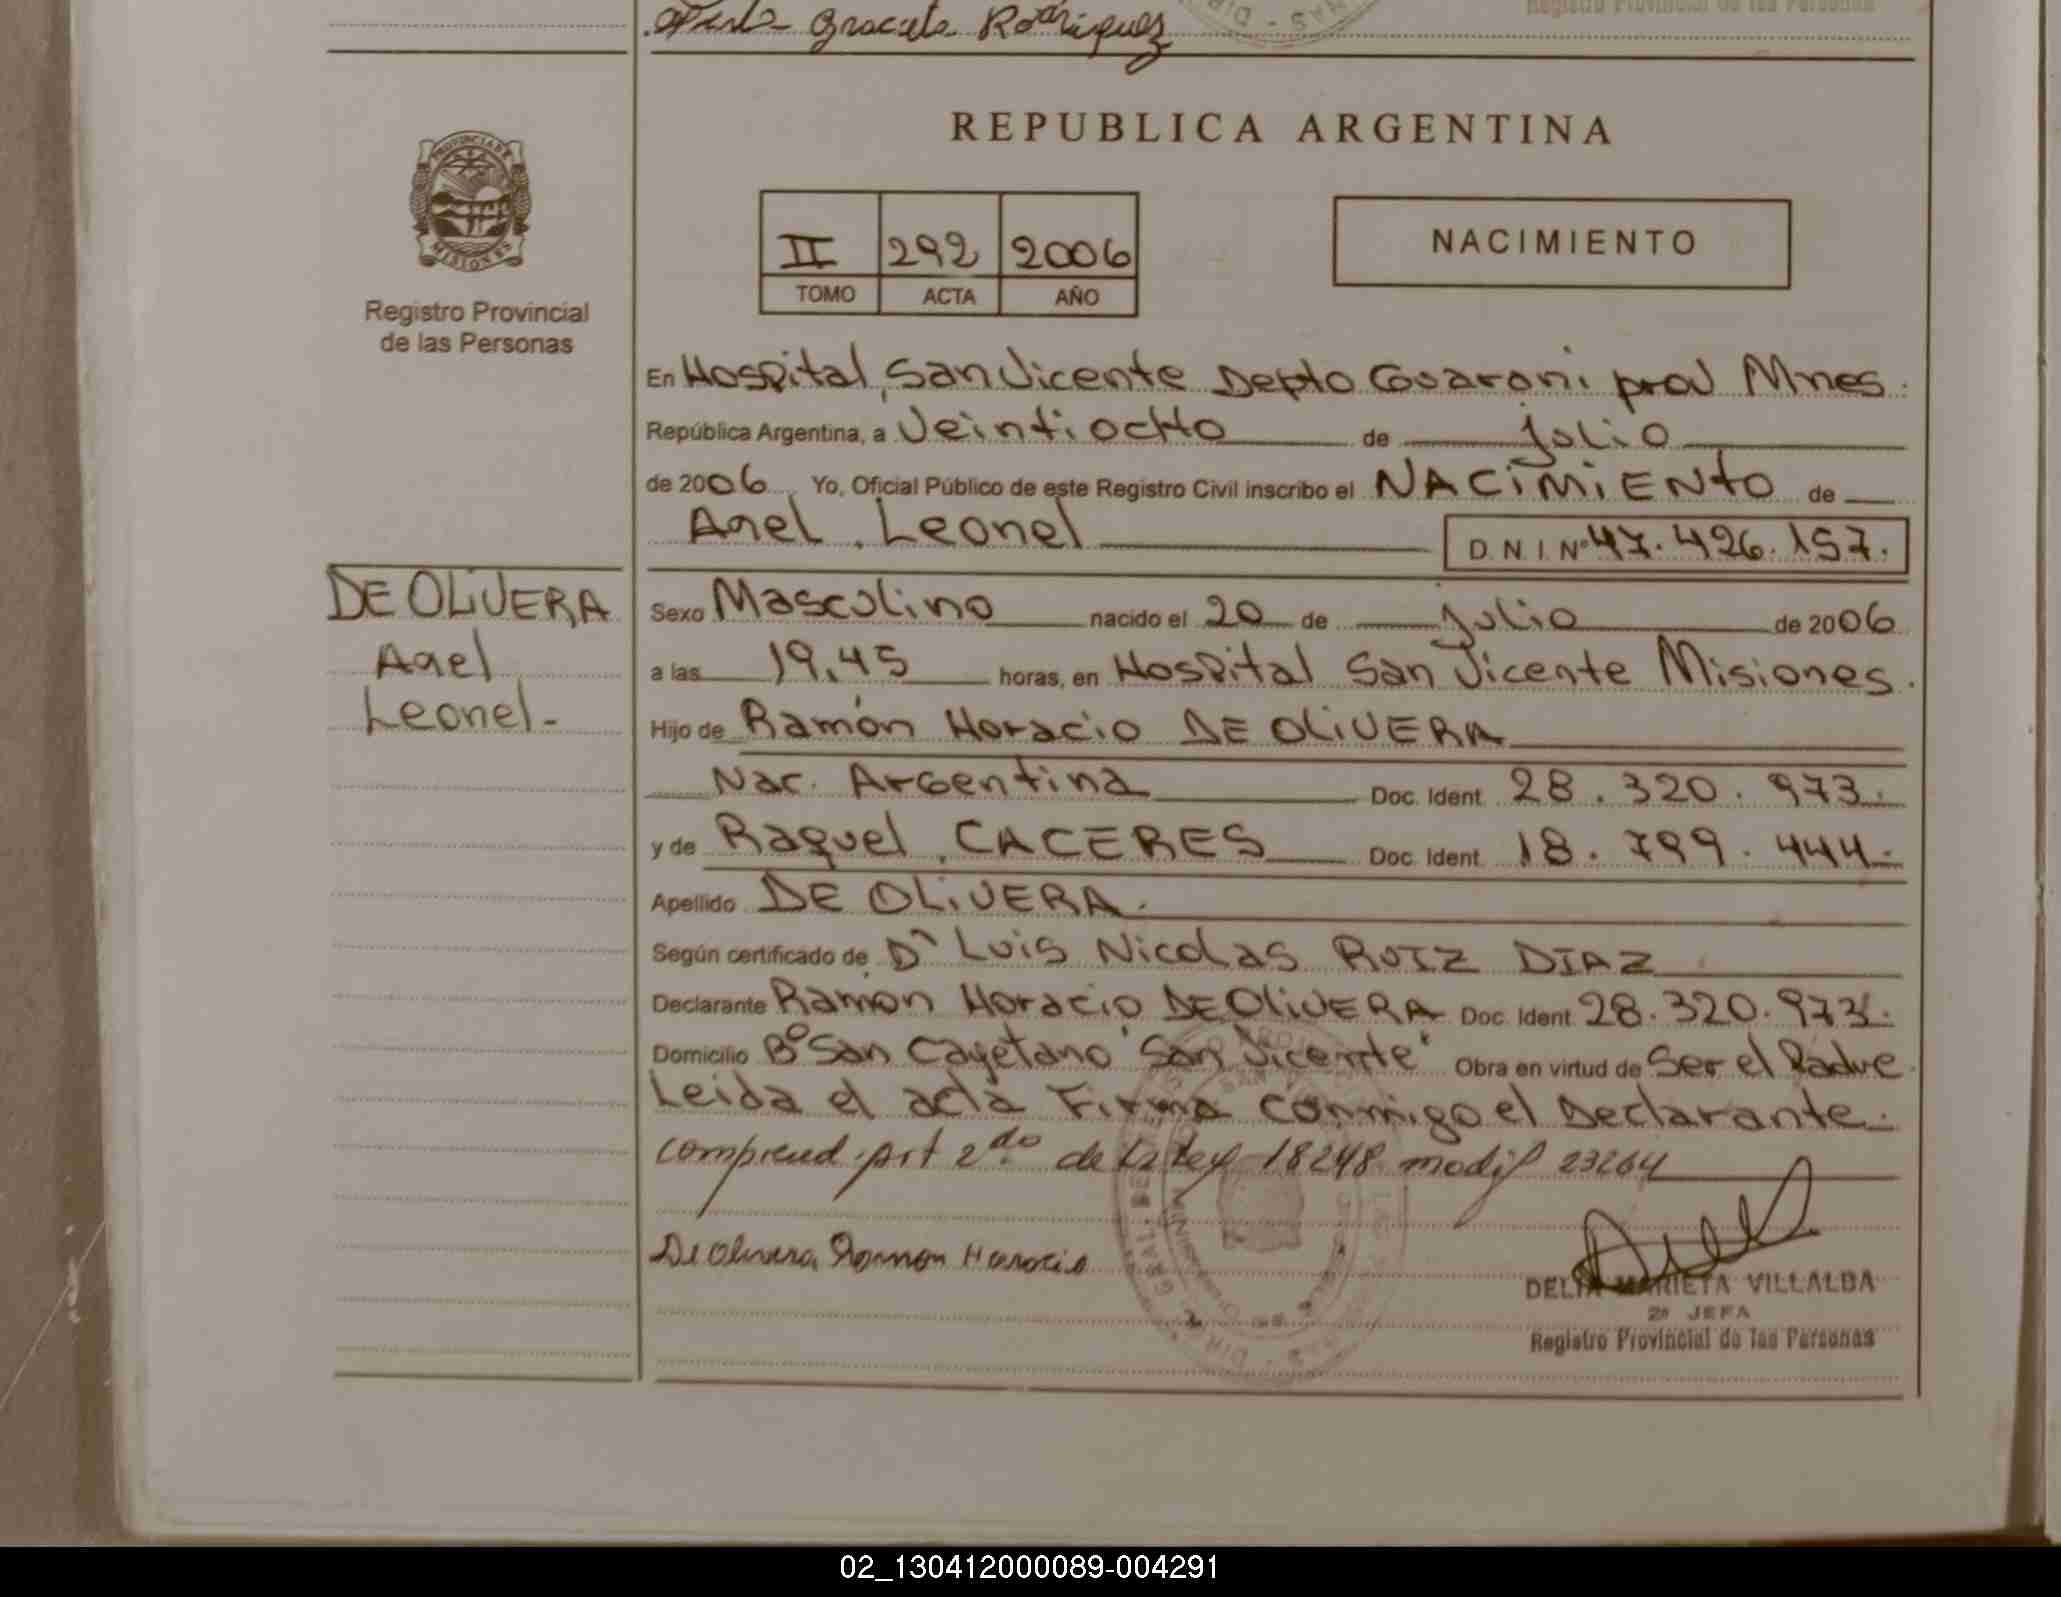 Graciela Rodriguez
Registro Provincial de las Personas
REPUBLICA ARGENTINA
PROVINCIA DE
MISIONES
Registro Provincial
de las Personas
II 292 2006
TOMO ACTA AÑO
NACIMIENTO
En Hospital, San Vicente Depto Guarani prov Mnes.
República Argentina, a Veintiocho de julio
de 2006 Yo, Oficial Público de este Registro Civil inscribo el NACIMIENTO de
Leonel D.N.I. Nº 47.426.157.
DE OLIVERA
Leonel.-
Sexo Masculino nacido el 20 de julio de 2006
a las 19,45 horas, en Hospital San Vicente Misiones.
Hijo de Ramón Horacio DE OLIVERA
Nac. Argentina Doc. Ident. 28.320.973.
y de Raquel, CACERES Doc. Ident. 18.799.444.-
Apellido DE OLIVERA.
Según certificado de Dr Luis Nicolas RUIZ DIAZ
Declarante Ramón Horacio DE OLIVERA Doc. Ident. 28.320.973.
Domicilio Bº San Cayetano "San Vicente" Obra en virtud de Ser el Padre
Leida el acta Firma conmigo el Declarante.
comprend. art 2do de la Ley 18248 modif 23264
De Olivera, Ramon Horacio
DELIA MARIETA VILLALBA
2º JEFA
Registro Provincial de las Personas
02_130412000089-004291